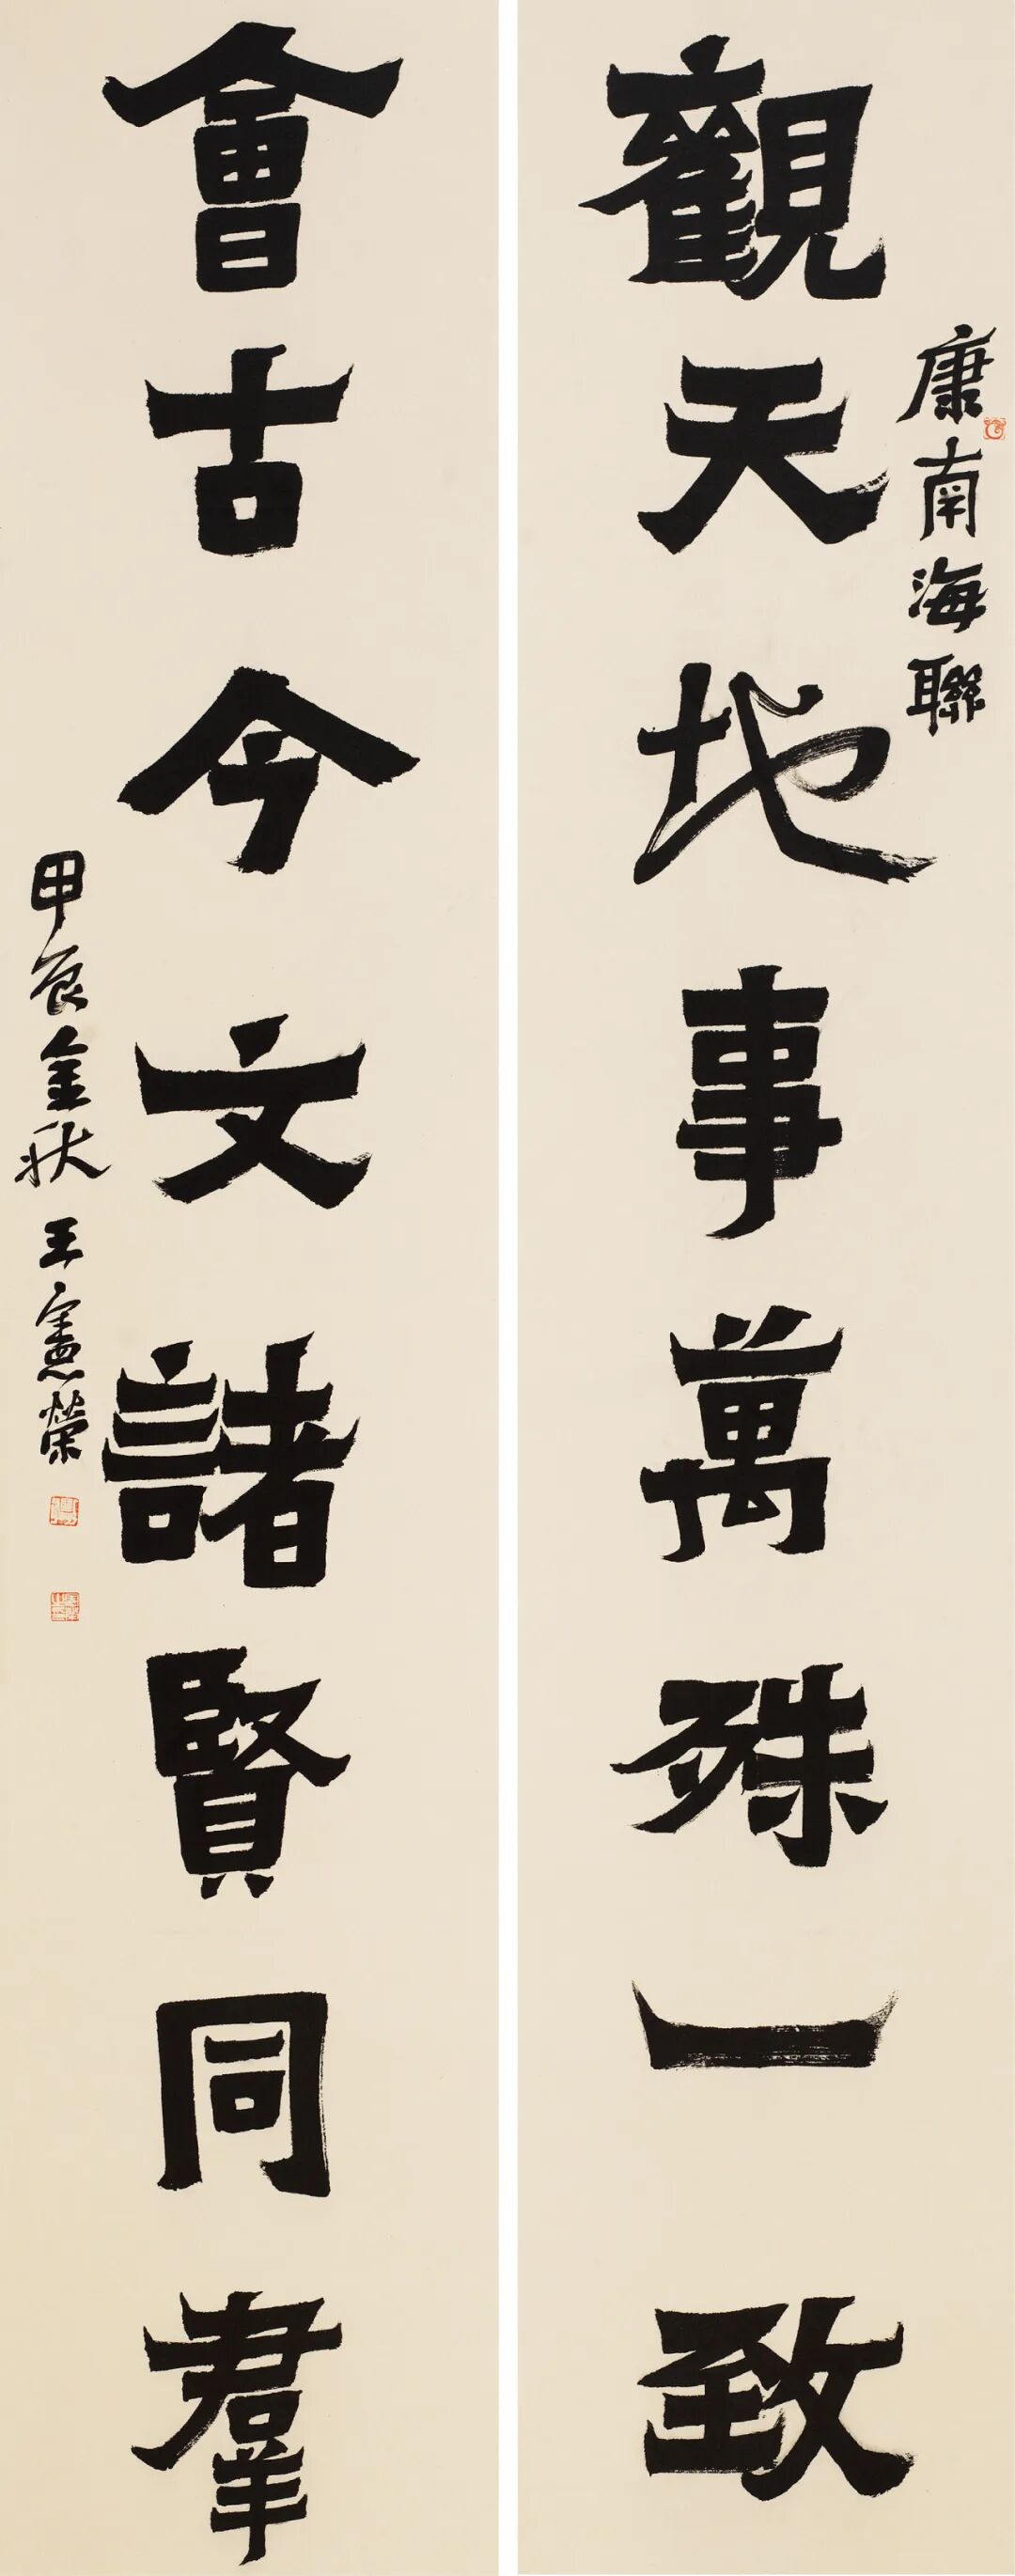 康南海聯
觀天地事萬殊一致
會古今文諸賢同羣
甲辰金秋王憲榮